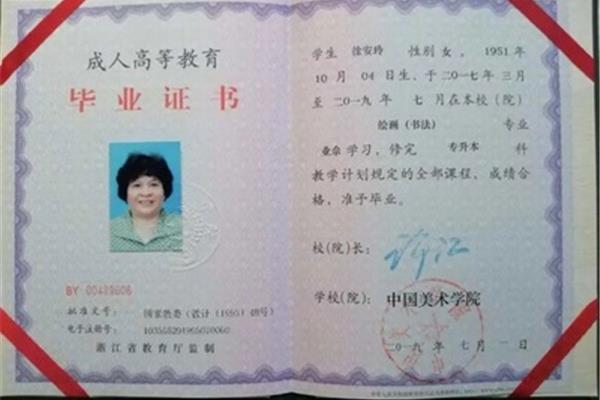 成人高等教育
毕业证书
BY 00489606
批准文号：国家教委（教计（1995）48号）
电子注册号：
浙江省教育厅监制
学生 徐安玲 性别 女 。1951年
10 月 04 日生，于二〇一七年 三月
至 二〇一九年 七 月在本校（院）
绘画（书法） 专业
业余 学习，修完 专升本 科
教学计划规定的全部课程，成绩合
格，准予毕业。
校（院）长：
学校（院）：中国美术学院
二〇一九年 七月 一日